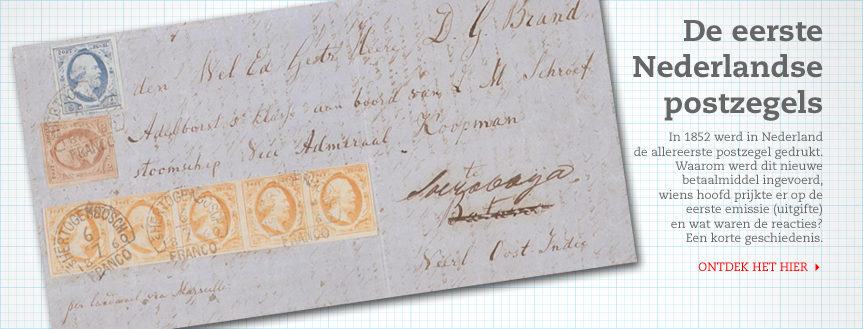 den Wel Ed Gestr Heere D. G. Brand
Adelborst 1e klasse aan boord van Z M Schroef
stoomschip Vice Admiraal Koopman
te
Soerabaya
Batavia
Neerl Oost Indie
per landmail via Marseille
'S HERTOGENBOSCH
FRANCO
De eerste
Nederlandse
postzegels
In 1852 werd in Nederland
de allereerste postzegel gedrukt.
Waarom werd dit nieuwe
betaalmiddel ingevoerd,
wiens hoofd prijkte er op de
eerste emissie (uitgifte)
en wat waren de reacties?
Een korte geschiedenis.
ONTDEK HET HIER